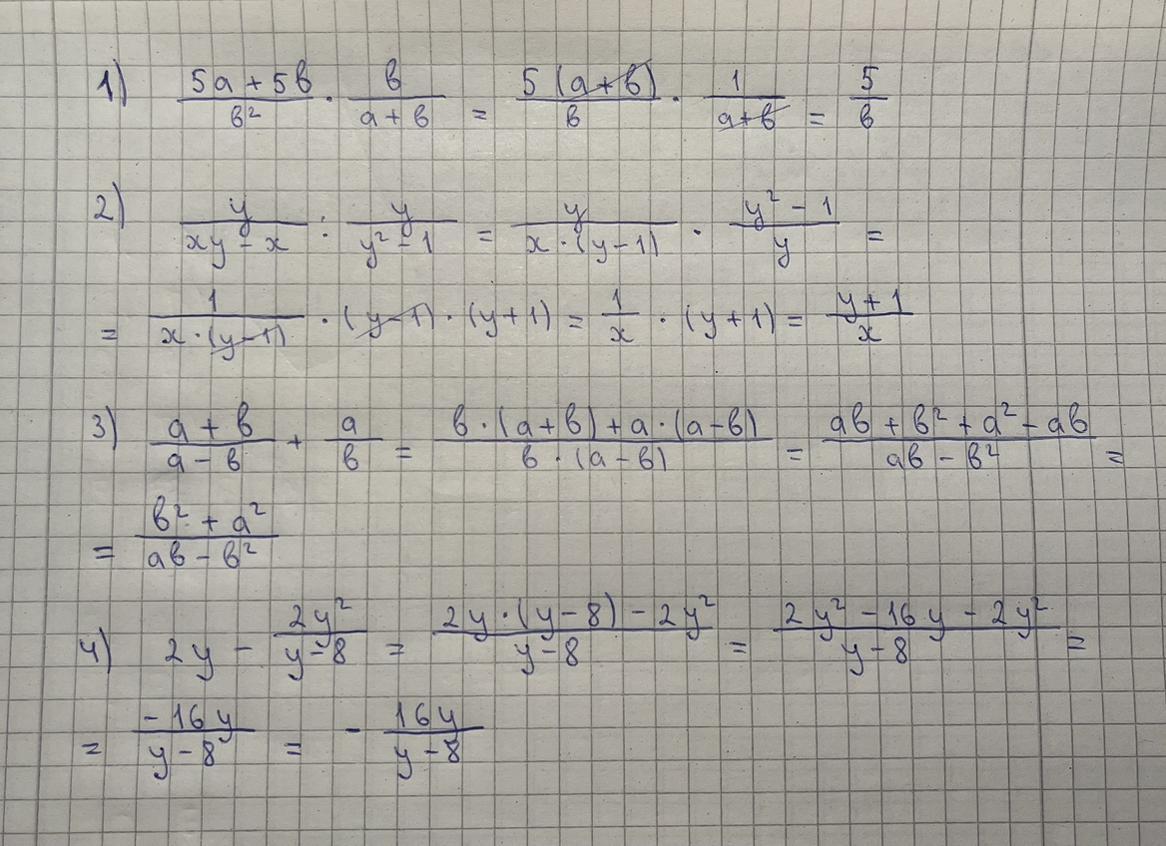 1) (5a + 5b)/b² · b/(a + b) = 5(a + b)/b · 1/(a + b) = 5/b
2) y/(xy - x) : y/(y² - 1) = y/(x · (y - 1)) · (y² - 1)/y =
= 1/(x · (y - 1)) · (y - 1) · (y + 1) = 1/x · (y + 1) = (y + 1)/x
3) (a + b)/(a - b) + a/b = (b · (a + b) + a · (a - b))/(b · (a - b)) = (ab + b² + a² - ab)/(ab - b²) =
= (b² + a²)/(ab - b²)
4) 2y - 2y²/(y - 8) = (2y · (y - 8) - 2y²)/(y - 8) = (2y² - 16y - 2y²)/(y - 8) =
= (-16y)/(y - 8) = - 16y/(y - 8)